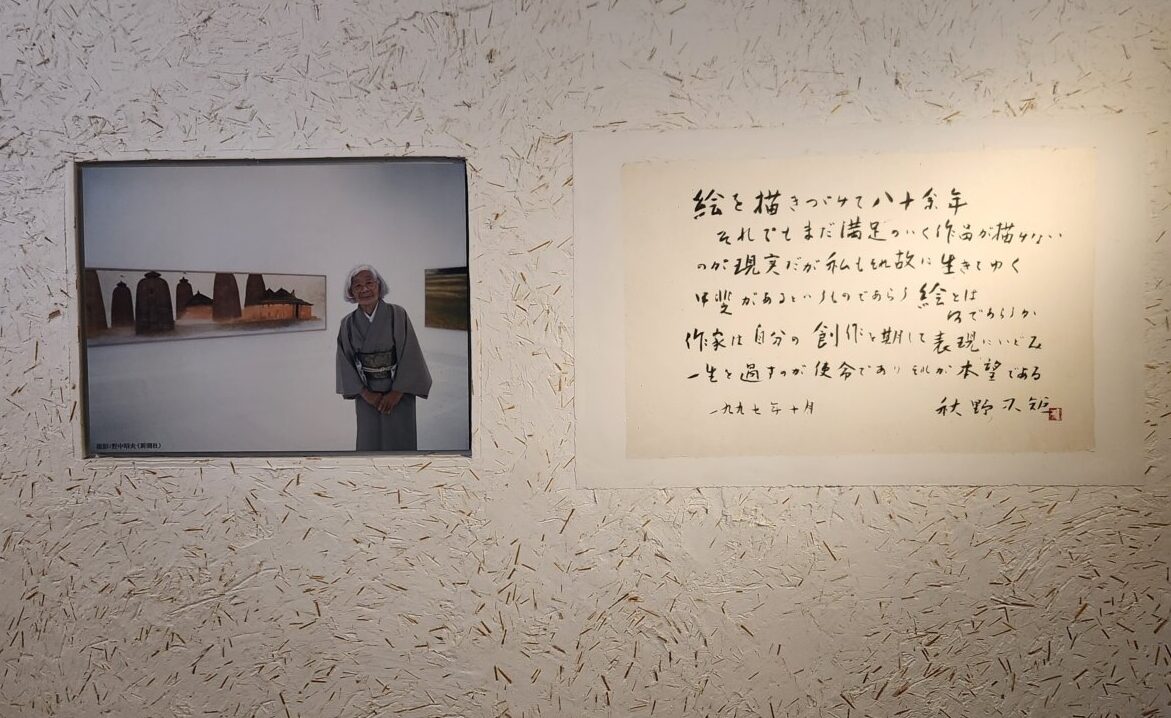 撮影/野中昭夫(新潮社)
絵を描きつづけて八十余年
それでもまだ満足のいく作品が描けない
のが現実だが私もそれ故に生きてゆく
甲斐があるというものであらう 絵とは
何であらうか
作家は自分の創作を期して表現にいどみ
一生を過すのが使命であり それが本望である
一九九七年十月
秋野不矩